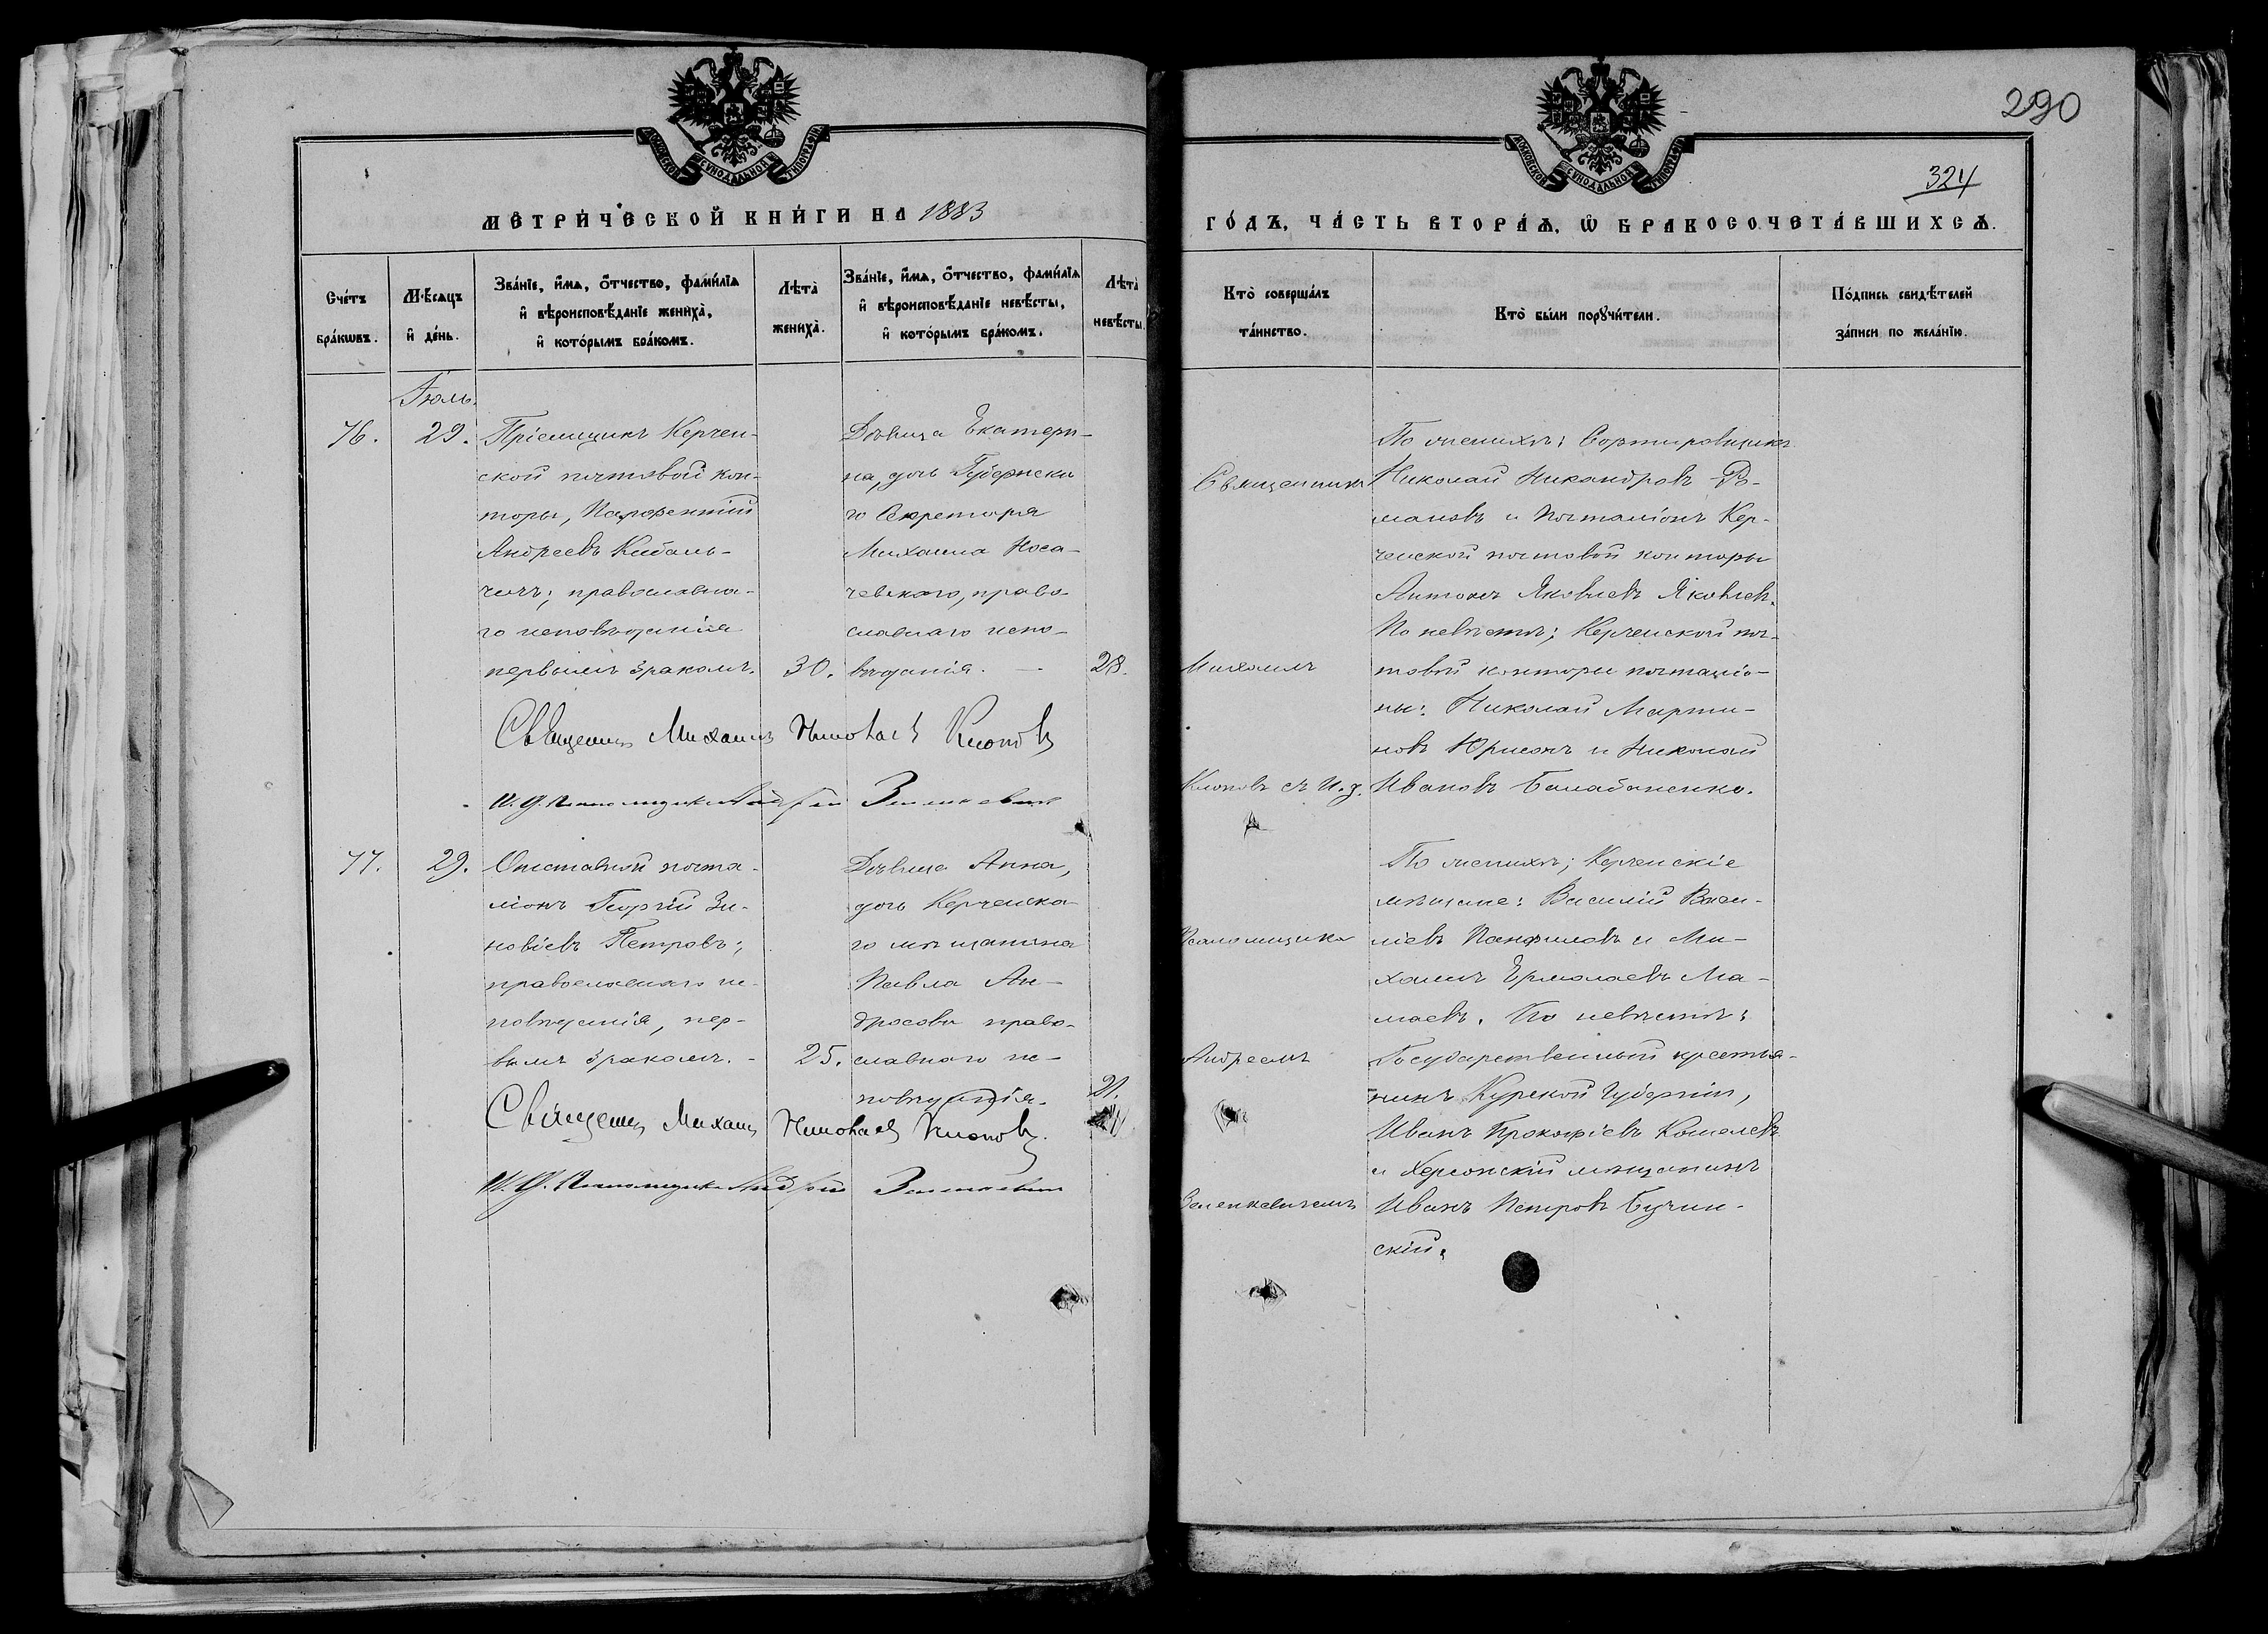 290
324
МОСКОВСКОЙ СѴНОДАЛЬНОЙ ТИПОГРАФІИ
МОСКОВСКОЙ СѴНОДАЛЬНОЙ ТИПОГРАФІИ
МЕТРИ́ЧЕСКОЙ КНИ́ГИ НА 1883
ГО́ДЪ, ЧА́СТЬ ВТОРА́Ѧ, Ѽ БРАКОСОЧЕТА́ВШИХСѦ.
Сче́тъ бра́кѡвъ.
Мѣ́сѧцъ и҆ де́нь.
Зва́нїе, и҆́мѧ, ѻ҆́тчество, фами́лїѧ
и҆ вѣроисповѣ́данїе жениха̀,
и҆ кото́рымъ бра́комъ.
Лѣта̀ жениха̀.
Зва́нїе, и҆́мѧ, ѻ҆́тчество, фами́лїѧ
и҆ вѣроисповѣ́данїе невѣ́сты,
и҆ кото́рымъ бра́комъ.
Лѣта̀ невѣ́сты.
Кто̀ соверша́лъ та́инство.
Кто̀ бы́ли порꙋчи́тели.
По́дпись свидѣ́телей за́писи по жела́нїю.
Іюль.
76.
29.
Пріемщикъ Керчен-
ской почтовой кон-
торы, Парфентій
Андреевъ Кибаль-
чичъ; православна-
го исповѣданія
первымъ бракомъ.
30.
Дѣвица Екатери-
на, дочь Губернска
го Секретаря
Михаила Носа-
чевскаго, право-
славнаго испо-
вѣданія. —
28.
Священникъ
Михаилъ
Клоповъ съ И. д.
По женихѣ: Сортировщикъ
Николай Никандровъ Ро-
мановъ и Почталіонъ Кер-
ченской почтовой конторы
Антонъ Яковлевъ Яковлев.
По невѣстѣ; Керченской поч-
товой конторы почталіо-
ны: Николай Марти-
новъ Юрисонъ и Николай
Ивановъ Балабаненко.
Священникъ Михаилъ Николаевъ Клоповъ
И. д. Псаломщика Андрей Зеленкевичъ
77.
29.
Отставной почта-
ліонъ Георгій Зи-
новіевъ Петровъ;
православнаго ис-
повѣданія, пер-
вымъ бракомъ. -
25.
Дѣвица Анна,
дочь Керченска-
го мѣщанина
Павла Ан-
дросова право-
славнаго ис-
повѣданія.
21.
Псаломщика
Андреемъ
Зеленкевичемъ
По женихѣ; Керченскіе
мѣщане: Василій Васи-
ліевъ Панфиловъ и Ми-
хаилъ Ермолаевъ Ма-
маевъ. По невѣстѣ:
Государственный крестья-
нинъ Курской Губерніи,
Иванъ Прокофіевъ Кошелевъ
и Херсонскій мѣщанинъ
Иванъ Петровъ Бучин-
скій.
Священникъ Михаилъ Николаевъ Клоповъ.
И. д. Псаломщика Андрей Зеленкевичъ